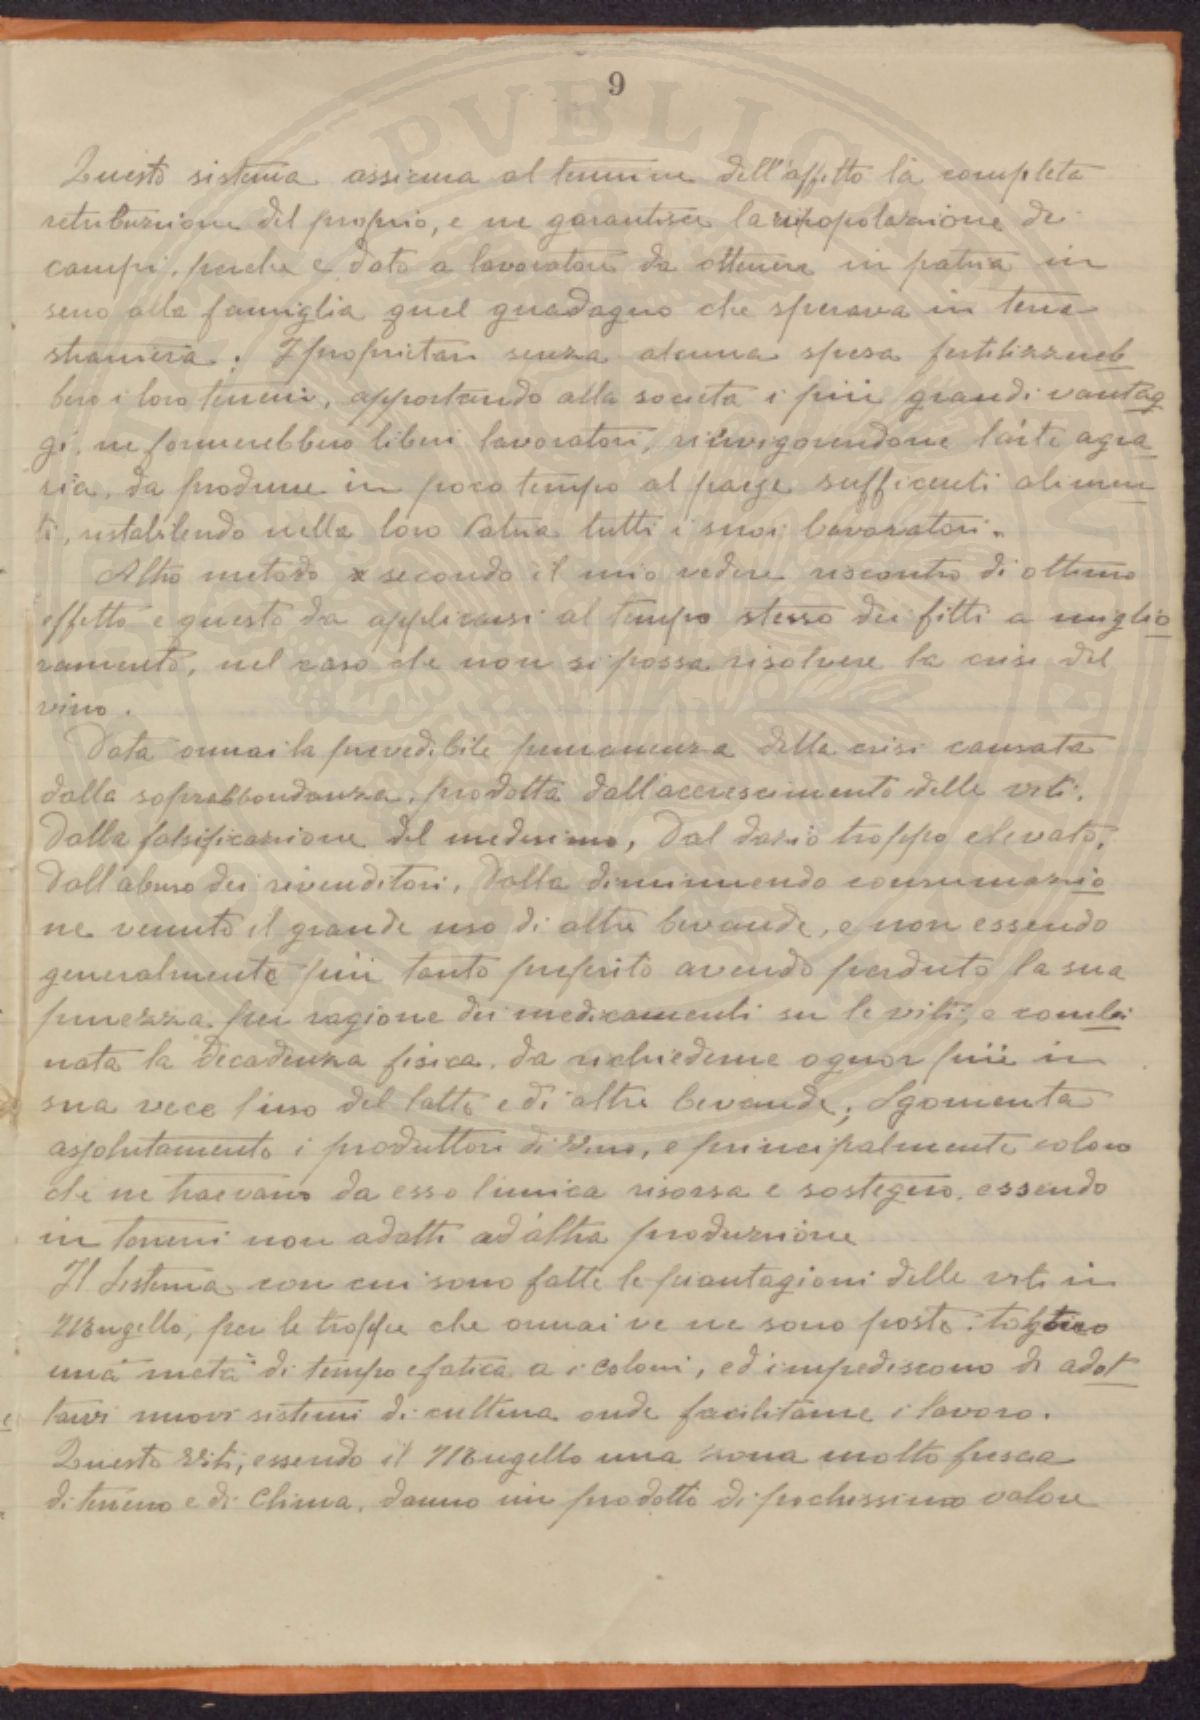 9
Questo sistema assicura al termine dell'affitto la completa
retribuzione del proprio, e ne garantisce la ripopolazione dei
campi, perche è dato a lavoratori da ottenere in patria in
seno alla famiglia quel guadagno che sperava in terra
straniera. I proprietari senza alcuna spesa fertilizzereb
bero i loro terreni, apportando alla societa i più grandi vantag
gi, ne formerebbero liberi lavoratori, rinvigorendone l'arte agra
ria, da produrre in poco tempo al paese sufficenti alimen
ti, ristabilendo nella loro Patria tutti i suoi lavoratori.
Altro metodo secondo il mio vedere riscontro di ottimo
effetto e questo da applicarsi al tempo stesso dei fitti a miglio
ramento, nel caso che non si possa risolvere la crisi del
vino.
Data ormai la prevedibile permanenza della crisi causata
dalla soprabbondanza, prodotta dall'accrescimento delle viti,
Dalla falsificazione del medesimo, Dal dazio troppo elevato,
Dall'abuso dei rivenditori, Dalla diminuendo consumazio
ne venuto il grande uso di altre bevande, e non essendo
generalmente più tanto preferito avendo perduto la sua
purezza per ragione dei medicamenti su le viti, e combi
nata la decadenza fisica, da richiederne ognor più in
sua vece l'uso del latte e di altre bevande; Sgomenta
assolutamente i produttori di Vino, e principalmente coloro
che ne traevano da esso l'unica risorsa e sostegno, essendo
in terreni non adatti ad altra produzione
Il Sistema con cui sono fatte le piantagioni delle viti in
Mugello, per le troppe che ormai ve ne sono poste, tolgono
una metà di tempo e fatica a i coloni, ed impediscono di adot
tarvi nuovi sistemi di cultura onde facilitarne i lavoro.
Queste Viti, essendo il Mugello una zona molto fresca
di terreno e di Clima, danno un prodotto di pochissimo valore